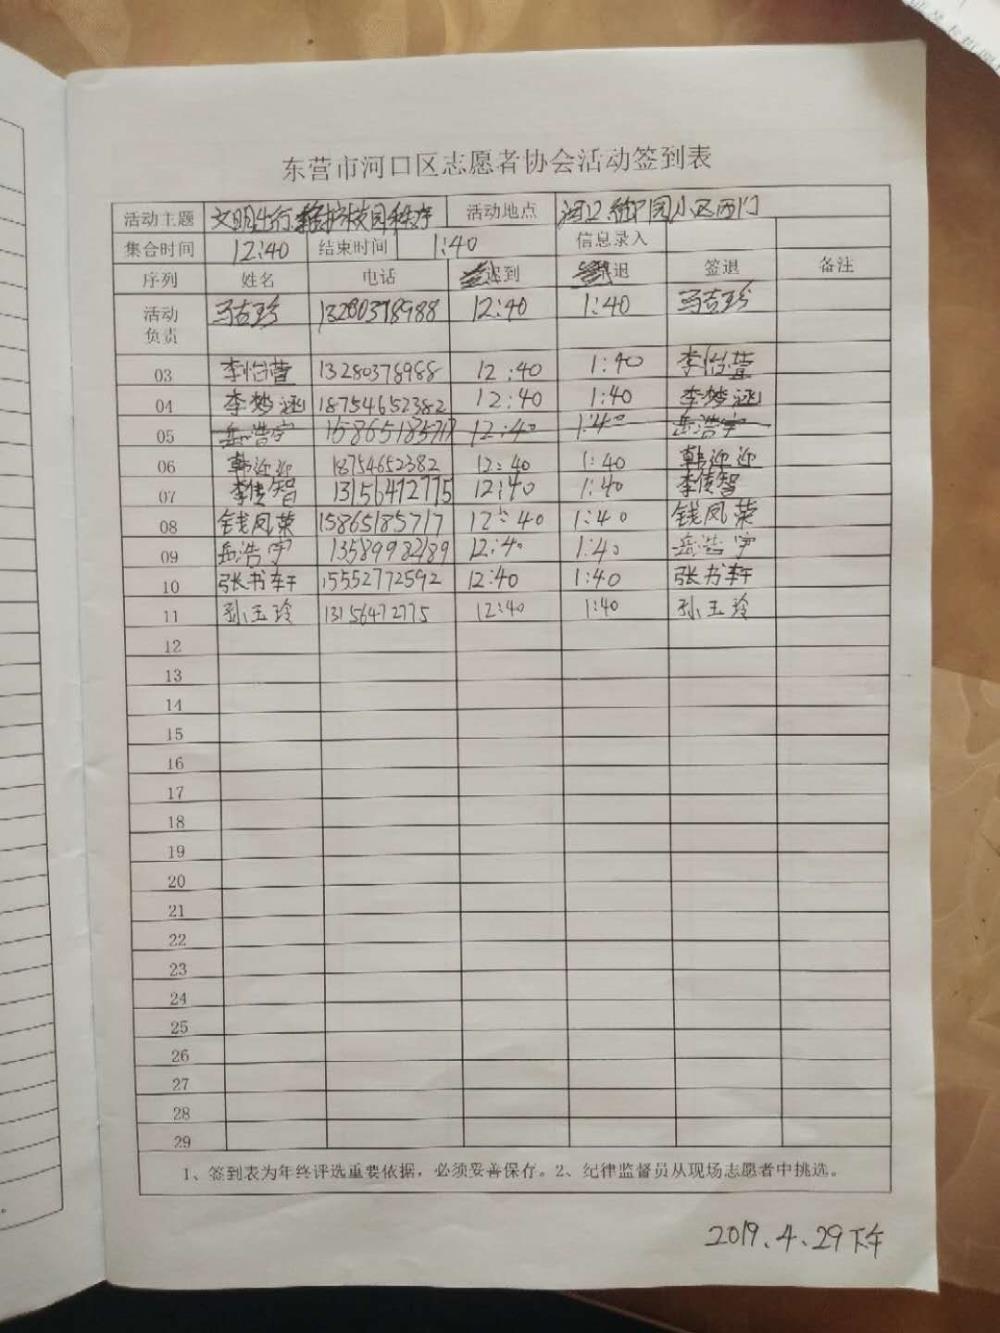 东营市河口区志愿者协会活动签到表
活动主题 文明出行 维护校园秩序 活动地点 河卫御园小区西门
集合时间 12:40 结束时间 1:40 信息录入
序列 姓名 电话 迟到 退 签退 备注
活动负责 马吉珍 13280378988 12:40 1:40 马吉珍
03 李怡萱 13280378988 12:40 1:40 李怡萱
04 李梦涵 18754652382 12:40 1:40 李梦涵
05 岳浩宇 15865185717 12:40 1:40 岳浩宇
06 韩迎迎 18754652382 12:40 1:40 韩迎迎
07 李传智 13156472775 12:40 1:40 李传智
08 钱凤荣 15865185717 12:40 1:40 钱凤荣
09 岳浩宇 13589982189 12:40 1:40 岳浩宇
10 张书轩 15552772592 12:40 1:40 张书轩
11 孙玉玲 13156472775 12:40 1:40 孙玉玲
12
13
14
15
16
17
18
19
20
21
22
23
24
25
26
27
28
29
1、签到表为年终评选重要依据，必须妥善保存。2、纪律监督员从现场志愿者中挑选。
2019.4.29下午